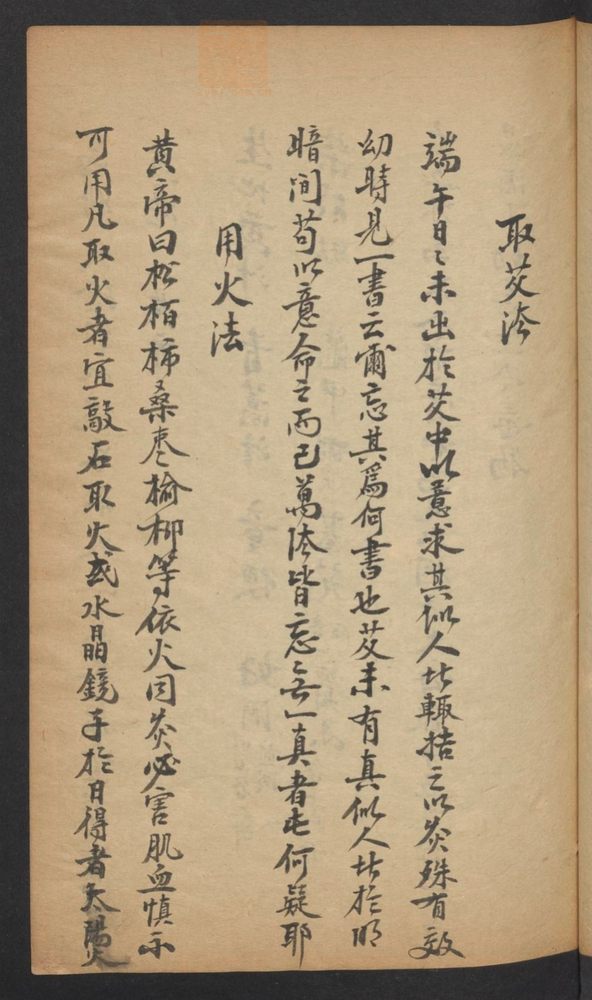 取艾法
端午日〻未出於艾中以意求其似人者輙括之以灸殊有效
幼時見一書云爾忘其為何書也艾未有真似人者於明
暗间苟以意命之而已萬法皆忘無一真者此何疑耶
用火法
黄帝曰松栢柿桑枣榆柳等依火囙灸必害肌血慎不
可用凡取火者宜敲石取火或水晶鏡子於日得者太陽火